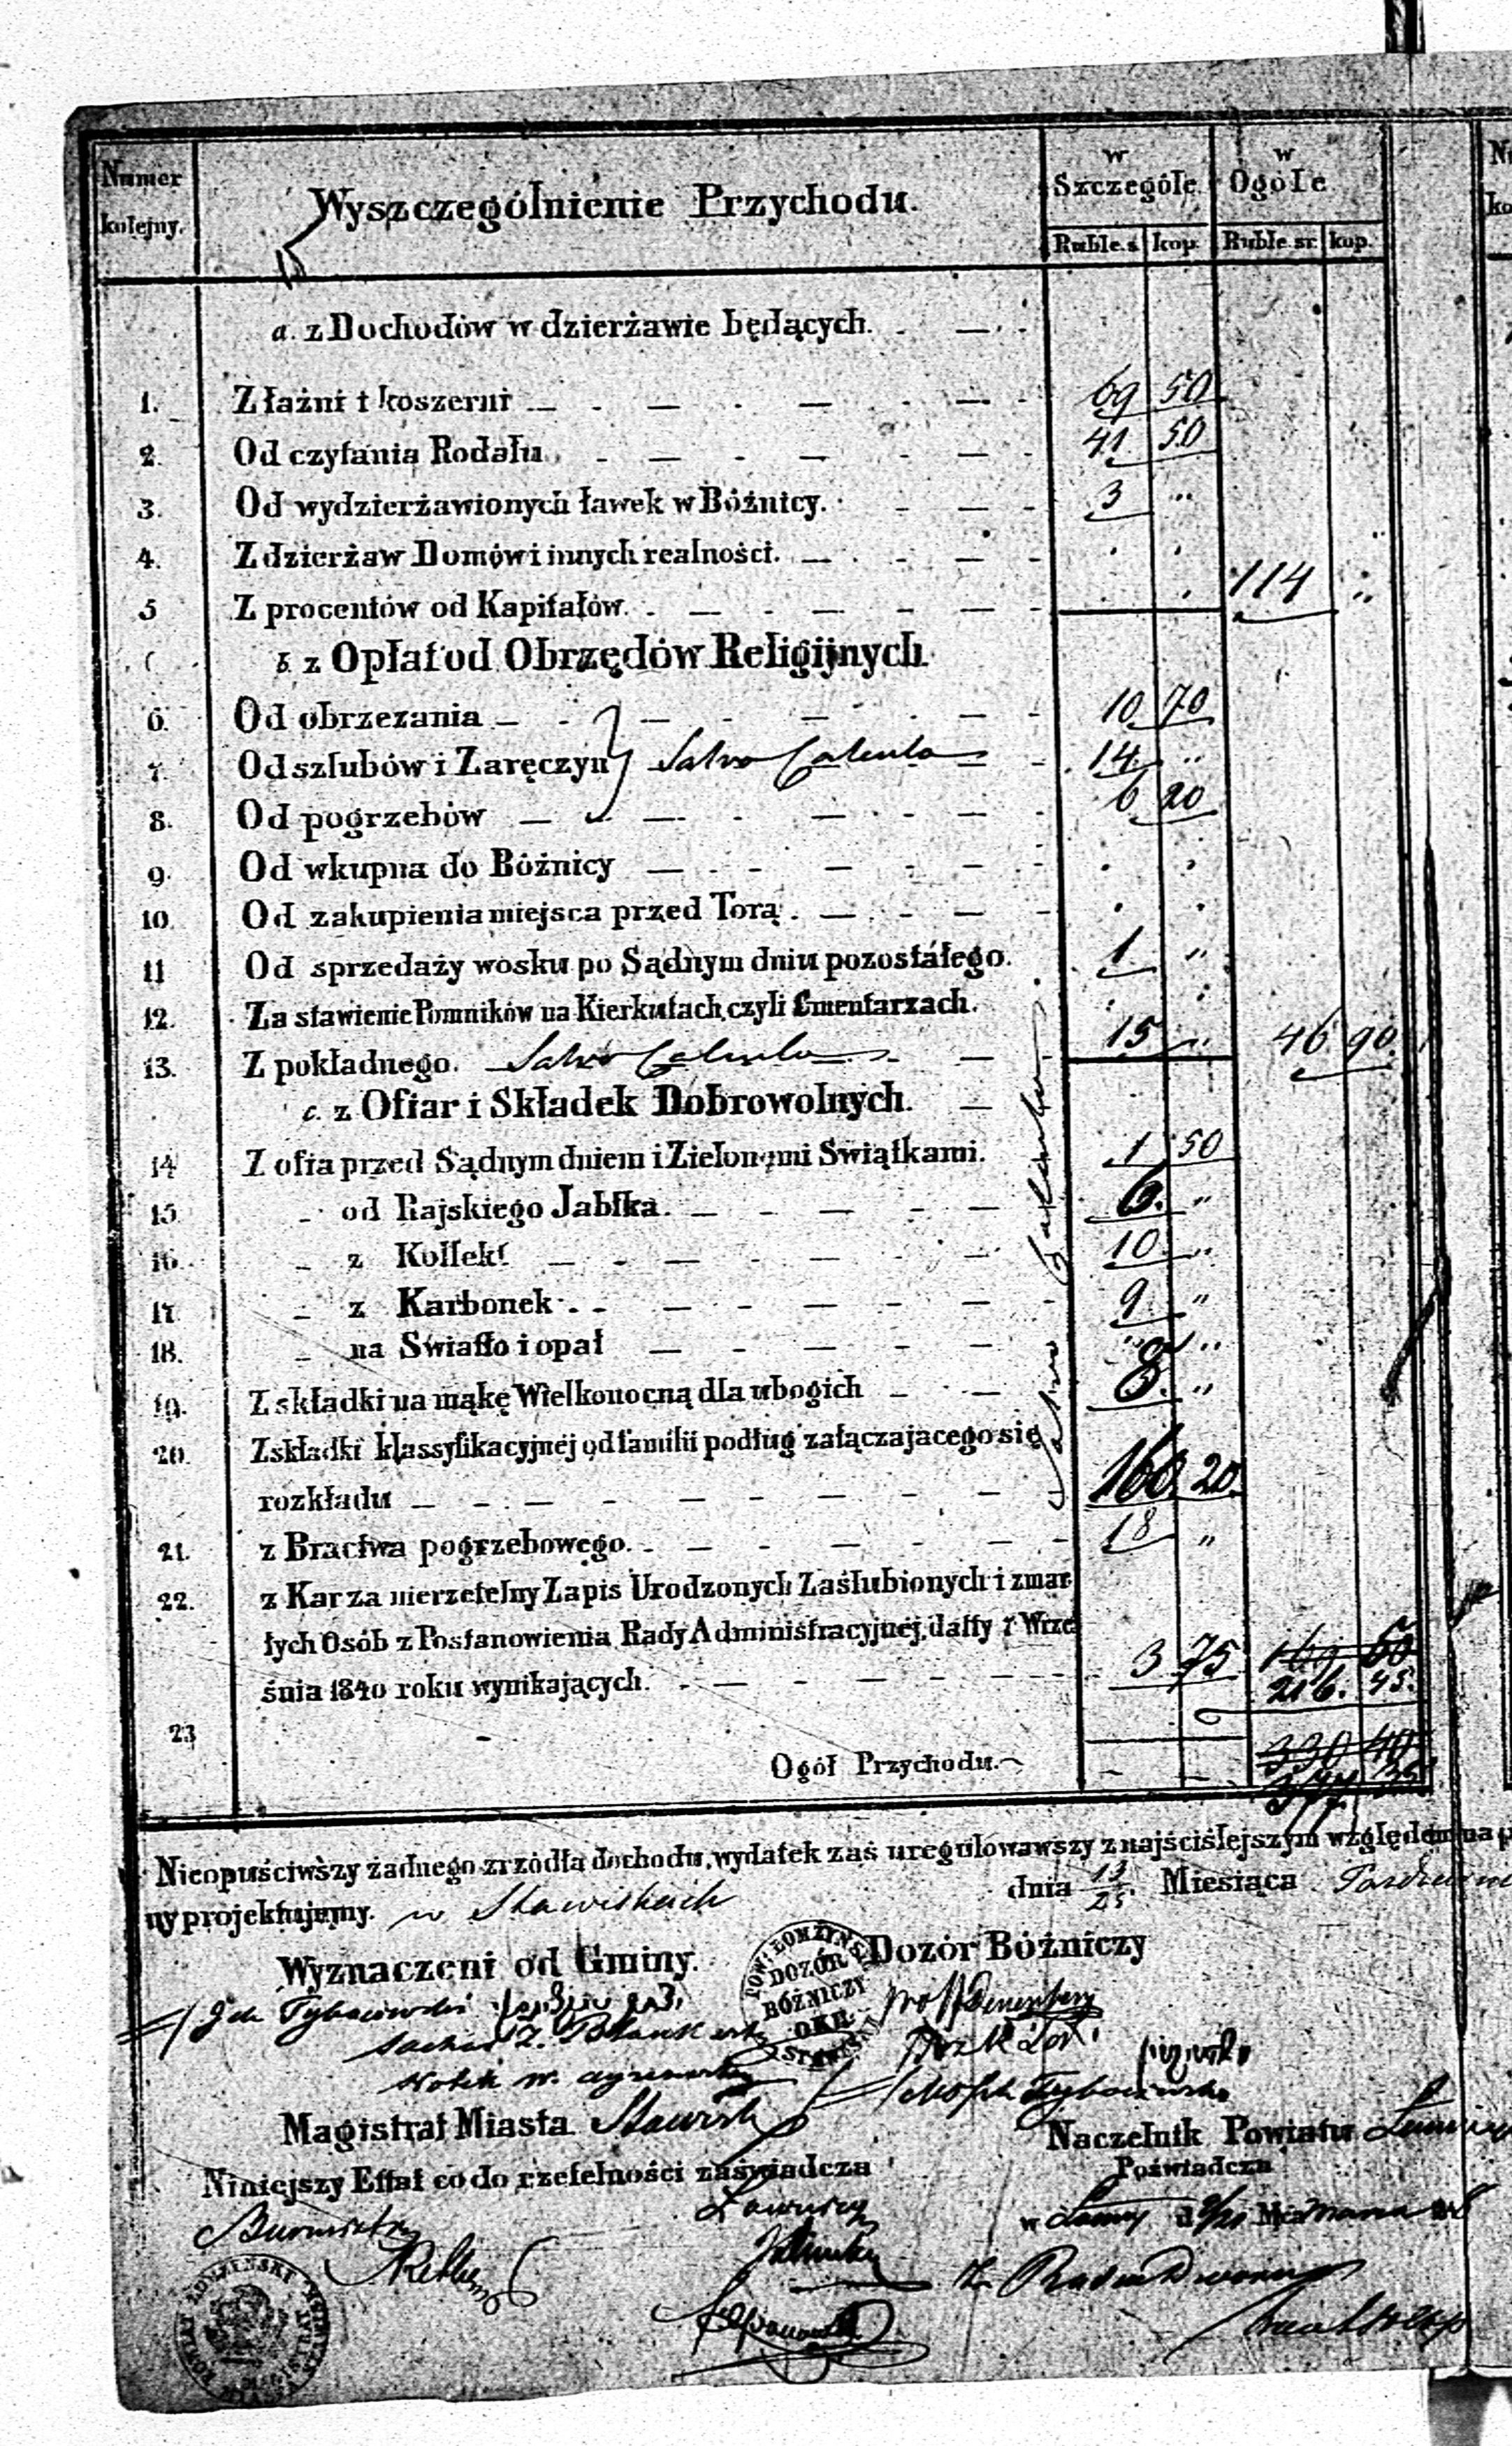 Numer kolejny.
Wyszczególnienie Przychodu.
w Szczególe
w Ogóle
Ruble s. kop. Ruble sr. kop.
a. z Dochodów w dzierżawie będących.
1. Z łaźni i koszerni 69 50
2. Od czytania Rodału 41 50
3. Od wydzierżawionych ławek w Bóżnicy. 3 "
4. Z dzierżaw Domów i innych realności.
5 Z procentów od Kapitałów. 114 "
b. z Opłat od Obrzędów Religijnych
6. Od obrzezania 10 70
7. Od szlubów i Zaręczyn Salvo Calculo 14 "
8. Od pogrzebów 6 20
9. Od wkupna do Bóżnicy
10. Od zakupienia miejsca przed Torą.
11 Od sprzedaży wosku po Sądnym dniu pozostałego. 1 "
12. Za stawienie Pomników na Kierkutach, czyli Cmentarzach.
13. Z pokładnego. Salvo Calculo 15 " 46 90
c. z Ofiar i Składek Dobrowolnych.
Salvo Calculo
14 Z ofia przed Sądnym dniem i Zielonymi Swiątkami. 1 50
15 - od Rajskiego Jabłka. 6. "
16. - z Kollekt 10 "
17. - z Karbonek 9 "
18. - na Swiatło i opał " "
19. Z składki na mąkę Wielkonocną dla ubogich 8. "
20. Z składki klassyfikacyjnéj od familii podług załączajacego się
rozkładu 160. 20.
21. z Bractwa pogrzebowego. 18 "
22. z Kar za nierzetelny Zapis Urodzonych Zaślubionych i zmar
łych Osób z Postanowienia Rady Administracyjnéj, datty 7 Wrze
śnia 1840 roku wynikających. 3 75 169 50
216. 45.
23
Ogół Przychodu. 330 40
377 35
Nieopuściwszy żadnego zrzódła dochodu, wydatek zaś uregulowawszy z najściślejszym względem na p
ny projektujemy. w Stawiskach dnia 13/25. Miesiąca
Wyznaczeni od Gminy. Dozór Bóżniczy
POW: ŁOMŻYŃSKI
DOZÓR
BÓŻNICZY
OKR.
STAWISKI
Magistrat Miasta Stawisk
Naczelnik Powiatu
Niniejszy Ettat co do rzetelności zaświadcza
Poświadcza
Burmistrz
Ławnicy
w d Mca